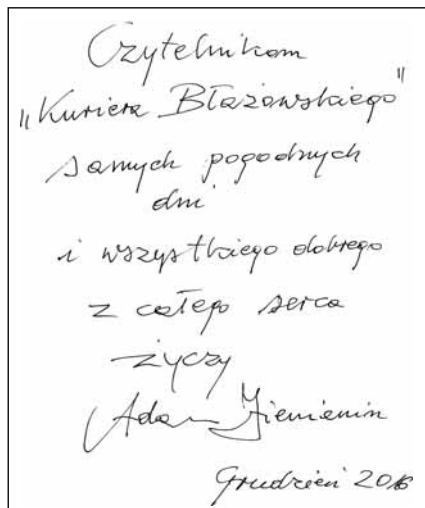 Czytelnikom
„Kuriera Błażowskiego"
samych pogodnych
dni
i wszystkiego dobrego
z całego serca
życzy
Adam Ziemianin
Grudzień 2016